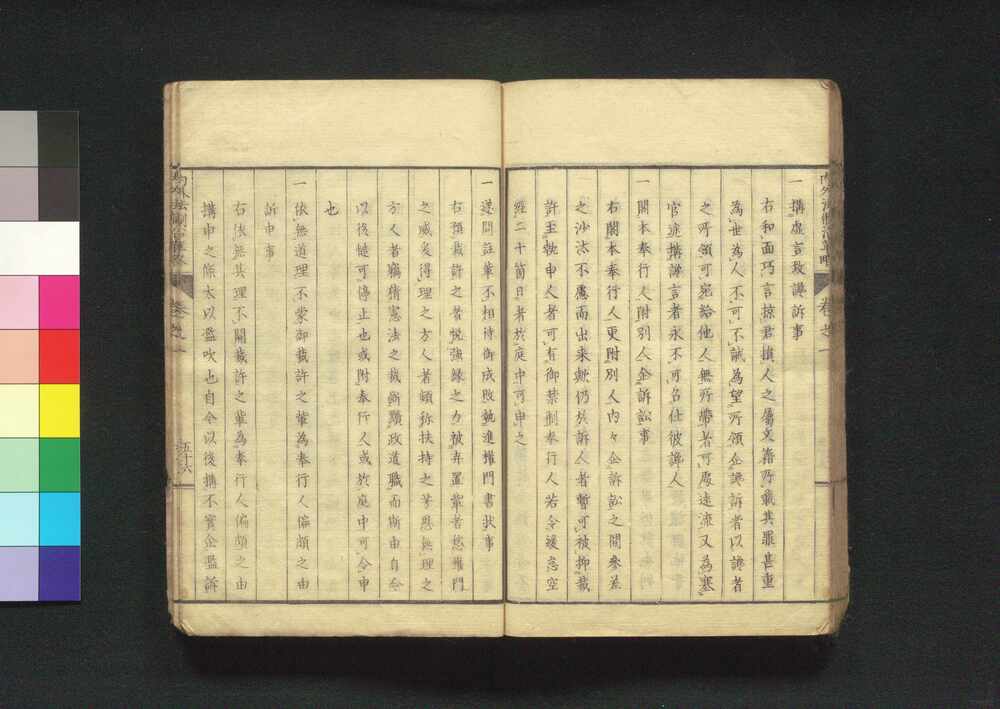 一 搆虚言致讒訴事
右和面巧言掠君損人之属文籍所載其罪甚重
為世為人不可不誡為望所領企讒訴者以讒者
之所領可宛給他人無所帯者可處遠流又為塞
官途搆讒言者永不可召仕彼讒人
一 閣本奉行人附別人企訴訟事
右閣本奉行人更附別人内々企訴訟之間参差
之沙汰不慮而出来歟仍於訴人者暫可被抑裁
許至執申人者可有御禁制奉行人若令緩怠空
經二十箇日者於庭中可申之
一 遂問註輩不相待御成敗執進権門書状事
右預裁許之者悦強縁之力被弃置輩者愁権門
之威爰得理之方人者頻称扶持之芳恩無理之
方人者竊猜憲法之裁断黷政道職而斯由自今
以後慥可停止也或附奉行人或於庭中可令申
也
一 依無道理不蒙御裁許之輩為奉行人偏頗之由
訴申事
右依無其理不關裁許之輩為奉行人偏頗之由
搆申之條太以濫吹也自今以後搆不實企濫訴
五十六